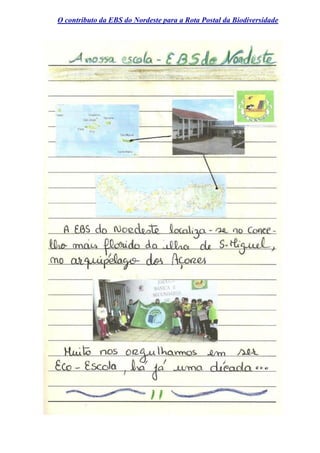 O contributo da EBS do Nordeste para a Rota Postal da Biodiversidade
A nossa escola - EBS do Nordeste
A EBS do Nordeste localiza-se no Conce-
lho mais florido da ilha de S. Miguel,
no arquipélago dos Açores
ESCOLA
BÁSICA E
SECUNDÁRIA
Muito nos orgulhamos em ser
Eco-Escola, há já uma década...
11